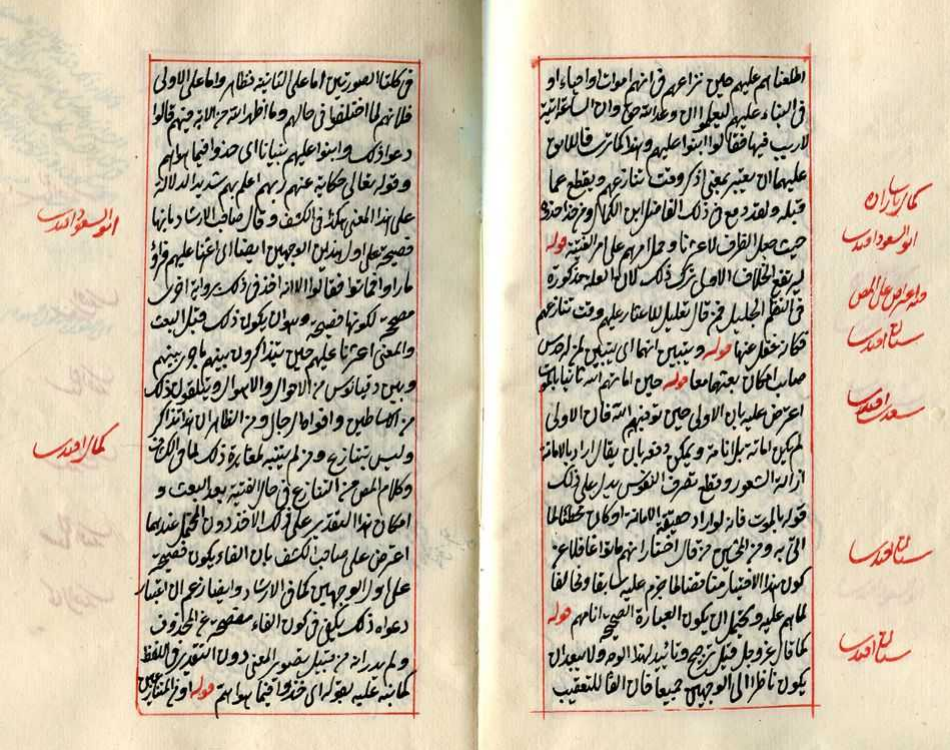 اطلعناهم عليهم حين نزاعهم في انهم اموات او احياء او
في البناء عليهم ليعلموا ان وعد الله حق وان الساعة اتية
لا ريب فيها فقالوا ابنوا عليهم وهذا كما ترى فاللايق
عليهما ان يعتبر بمعنى اذكر وقت تنازعهم ويقطع عما
قبله ولقد دمع في ذلك الفاضل ابن الكمال ومن حذا حذوه
حيث جعل الظرف لاعثرنا وحمل امرهم على امر الفتية قوله
ليرتفع الخلاف الاولى ترك ذلك لان العلة مذكورة
في النظم الجليل فمن قال تعليل للاعثار عليهم وقت تنازعهم
فكانه غفل عنها قوله ويتبين انهما اى يتبين لمن
صاب امكان بعثهما معا قوله حين اماتهم الله ثانيا بالموت
اعترض عليه بان الاولى حين توفيهم الله فان الاولى
لم يكن اماتة بل انامة ويمكن دفعه بان يقال اراد بالاماتة
ازالة الشعور وقطع تصرف النفوس يدل على ذلك
قوله بالموت فانه لو اراد حقيقة الاماتة لكان
اتى به ومن المحشين من قال اختار انهم ماتوا
كون هذا الاختيار مناقضا لما جزم عليه سابقا ومخالفا
لما هم عليه ويحتمل ان يكون العبارة الصحيحة انامهم قوله
كما قال عز وجل قيل ترجيح وتأييد لهذا الوجه ولا يبعد ان
يكون ناظرا الى الوجهين جميعا فان الفا للتعقيب
كمال پاشازاده
ابو السعود افندى
سنان افندى
سعدى افندى
سنان افندى
سنان افندى
في كلتا الصورتين اما على الثانية فظاهر واما على الاولى
فلانهم لما اختلفوا في حالهم وما اظهر الله من الاية فيهم قالوا
دعوا ذلك وابنوا عليهم بنيانا اى خذوا فيما هو اهم
وقوله تعالى حكاية عنهم ربهم اعلم بهم شديد الدلالة
على هذا المعنى هكذا في الكشف وقال صاحب الارشاد بانها
فصيحة على اول هذين الوجهين ايضا اى اعثرنا عليهم فرأوا
ما راوا فماتوا فقالوا الا انه اخذ في ذلك برواية اخرى
مصححة لكونها فصيحة وهو ان يكون ذلك قبل البعث
والمعنى اعثرنا عليهم حين يتذاكرون بينهم ما جرى بينهم
وبين دقيانوس من الاحوال والاهوال ويتلقون ذلك
من الاساطين وافواه الرجال ومن الظاهر ان هذا تذاكر
وليس بتنازع ومن لم يتنبه لمغايرة ذلك لما في الكشف
وكلام المص من التنازع في حال الفتية بعد البعث و
امكان هذا التقدير على ذلك الاخذ دون المحتمل عندهما
اعترض على صاحب الكشف بان الفاء يكون فصيحة
على اول الوجهين كما في الارشاد وايضا زعم ان اعتبار
دعواه ذلك يكفى في كون الفاء مفصحة عن المحذوف
ولم يدر انه من قبيل تصوير المعنى دون التقدير في اللفظ
كما نبه عليه بقوله اى خذوا فيما هو اهم قوله او من المتنازعين
ابو السعود افندى
كمال افندى